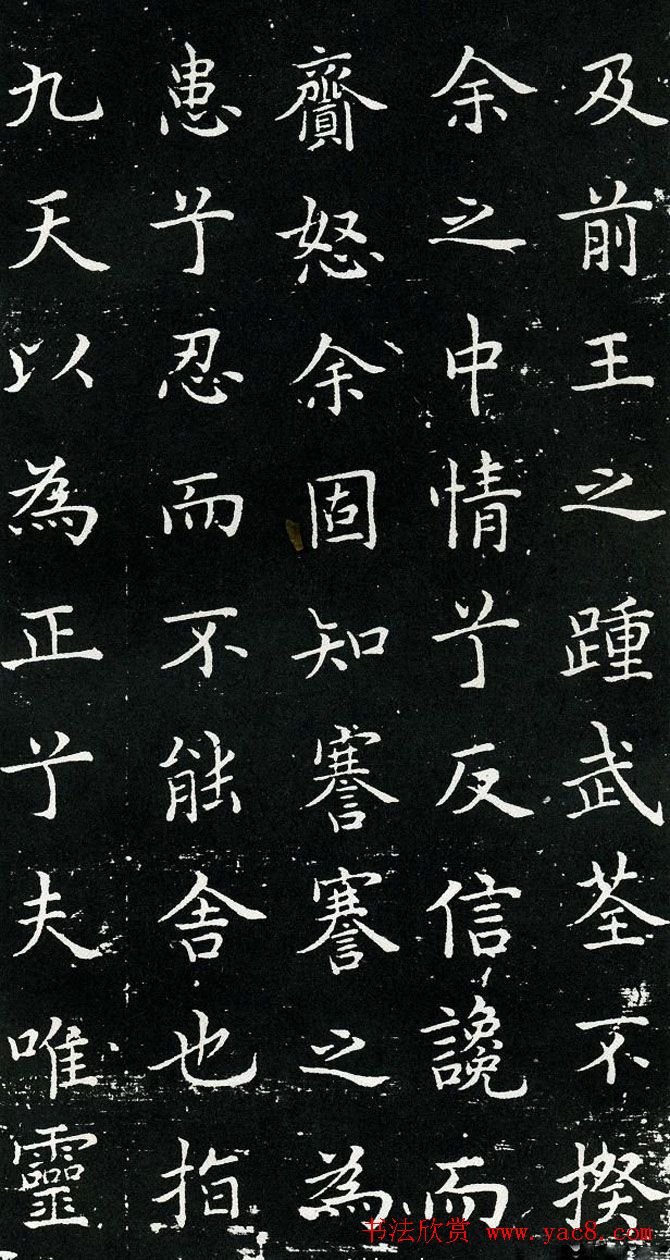 及前王之踵武荃不揆
余之中情兮反信讒而
齎怒余固知謇謇之為
患兮忍而不能舍也指
九天以為正兮夫唯靈
书法欣赏 www.yac8.com